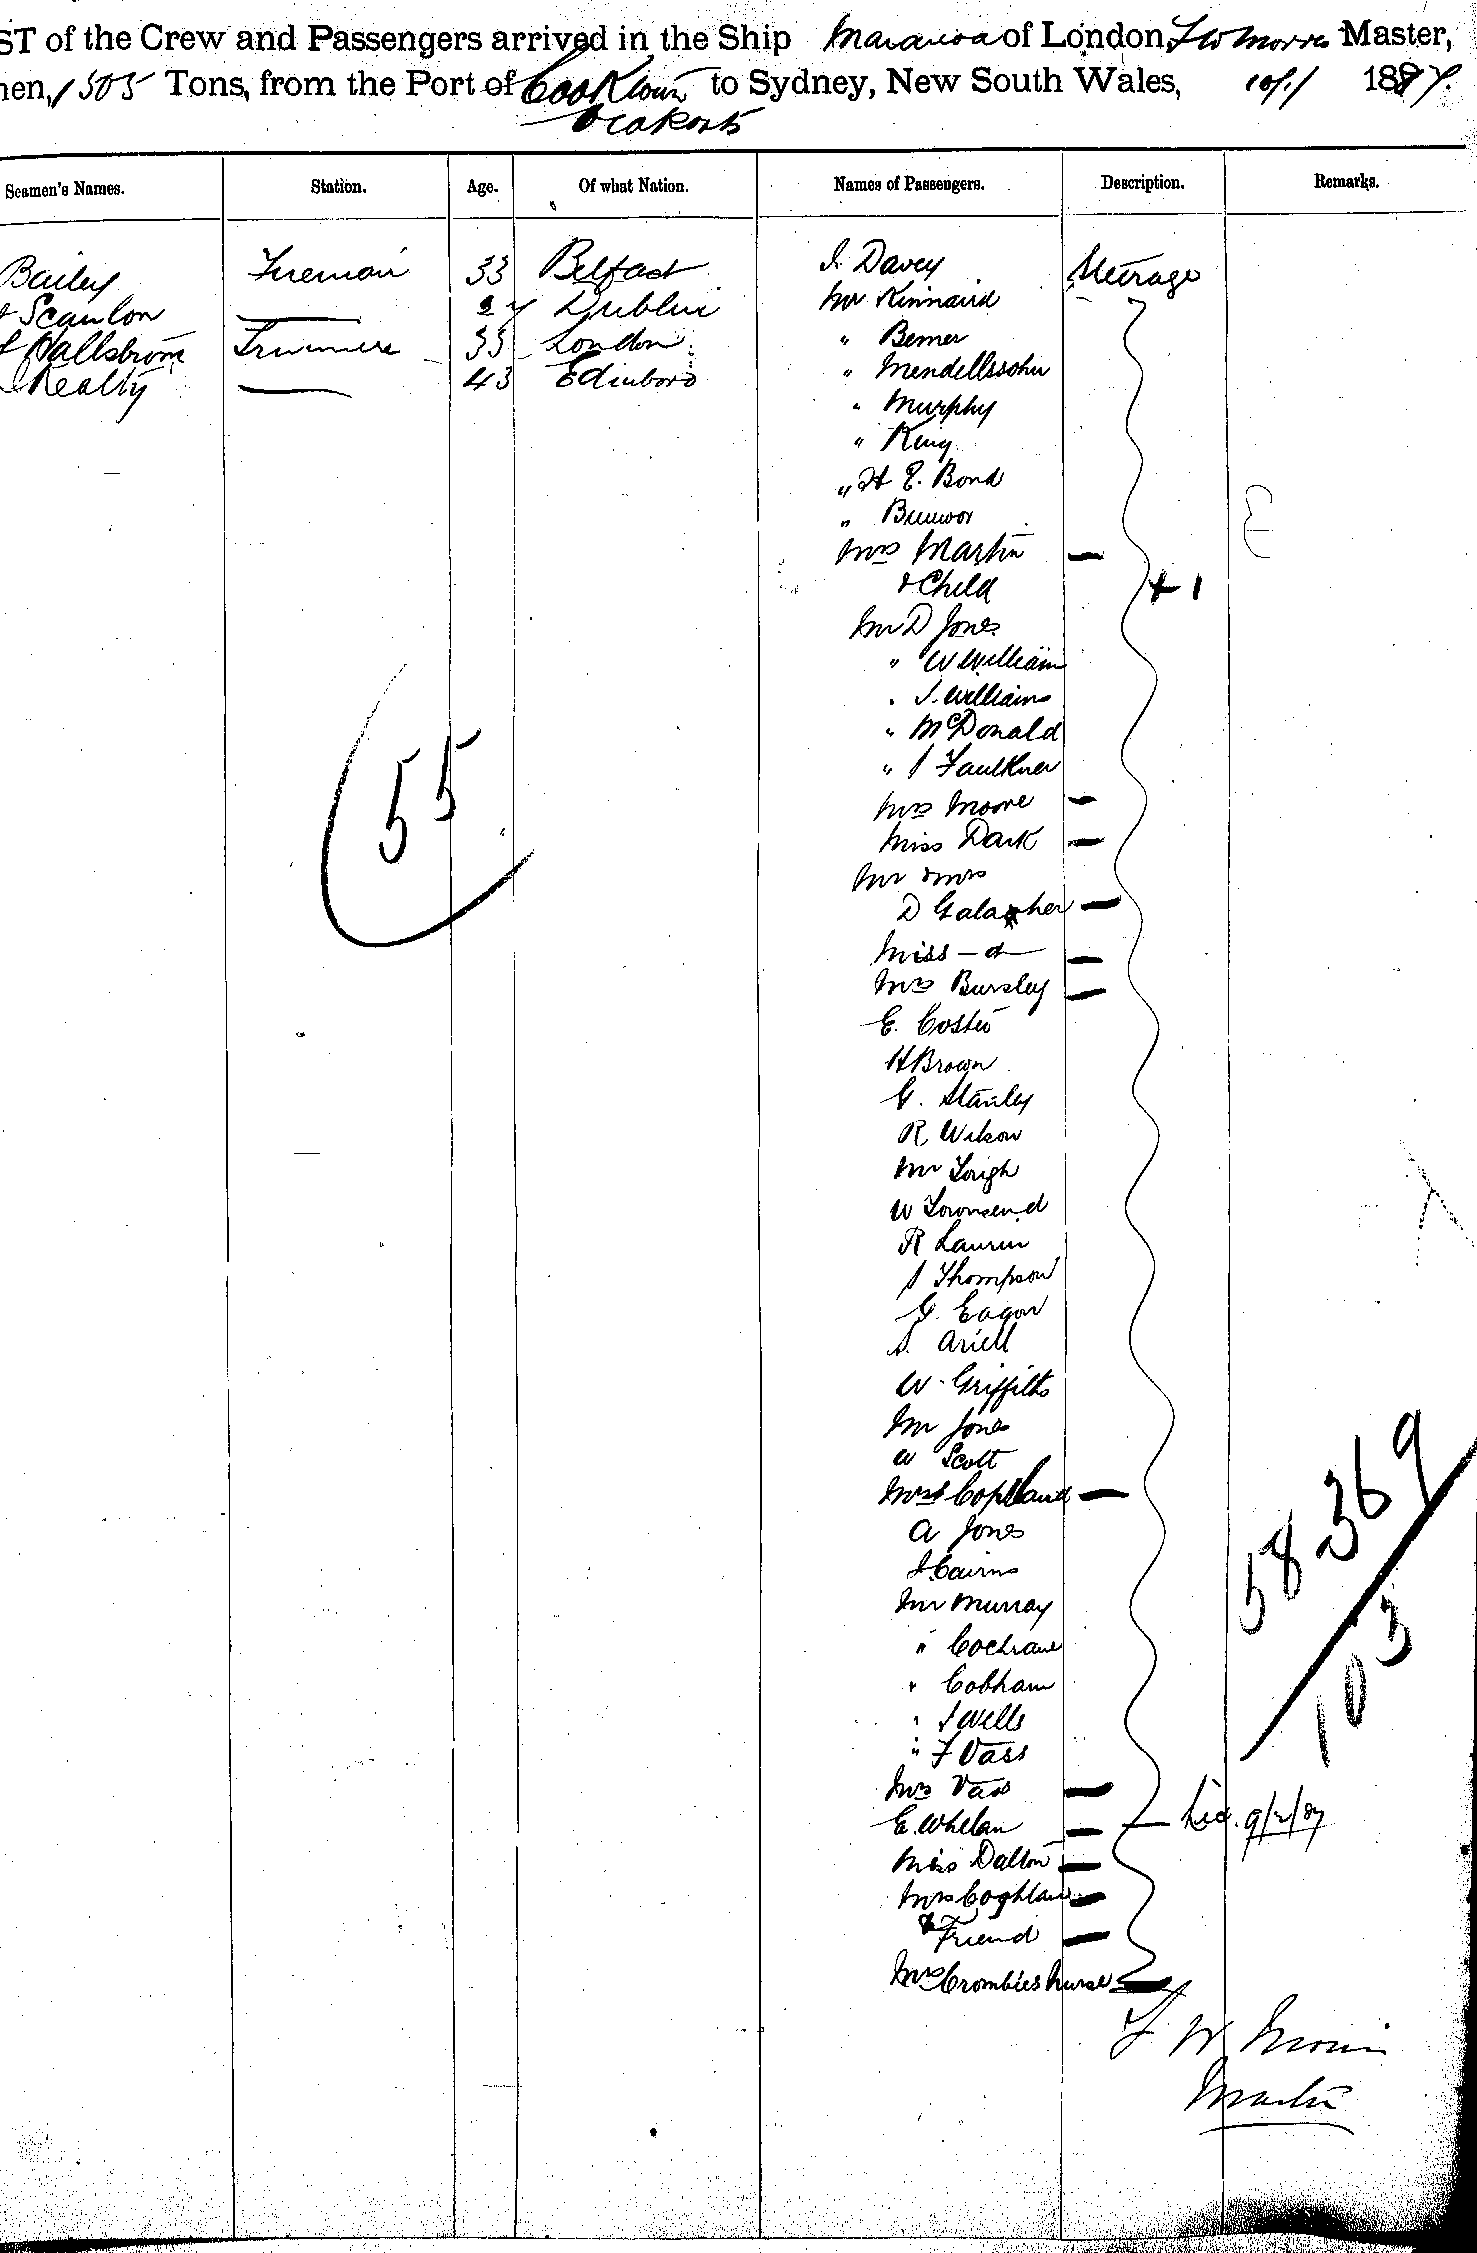 ST of the Crew and Passengers arrived in the Ship Mararoa of London, F W Morris Master,
men, 1505 Tons, from the Port of Cooktown to Sydney, New South Wales, 10/1 1887.
&c ports
Seamen's Names. Station. Age. Of what Nation. Names of Passengers. Description. Remarks.
Bailey Fireman 33 Belfast J. Davey Steerage
Scanlon 27 Dublin Mr Kinnaird
Hallstrom Trimmer 33 London " Berner
Kealty 43 Edinboro " Mendellssohn
" Murphy
" King
" H E. Bond
"
Mrs Martin
& Child + 1
Mr D Jones
" W William
" J. Williams
" McDonald
" J Faulkner
Mrs Moore
Miss Dark
Mr & Mrs
D Galagher
Miss - do
Mrs Bursley
E. Coster
H Brown
G. Stanley
R. Wilson
Mr Leigh
W Townsend
R Laurin
J Thompson
G. Eagar
S. Ariell
W. Griffiths
Mr Jones
W Scott
Mrs Copland
A Jones
J. Cairns
Mr Murray
" Cochrane
" Cobham
" J Wells
" F Vass
Mrs Vass
E. Whelan
Miss Dalton
Mrs Coghlan
& Friend
Mrs Crombies nurse
55
58 369
103
9/2/87
F W Morris
Master